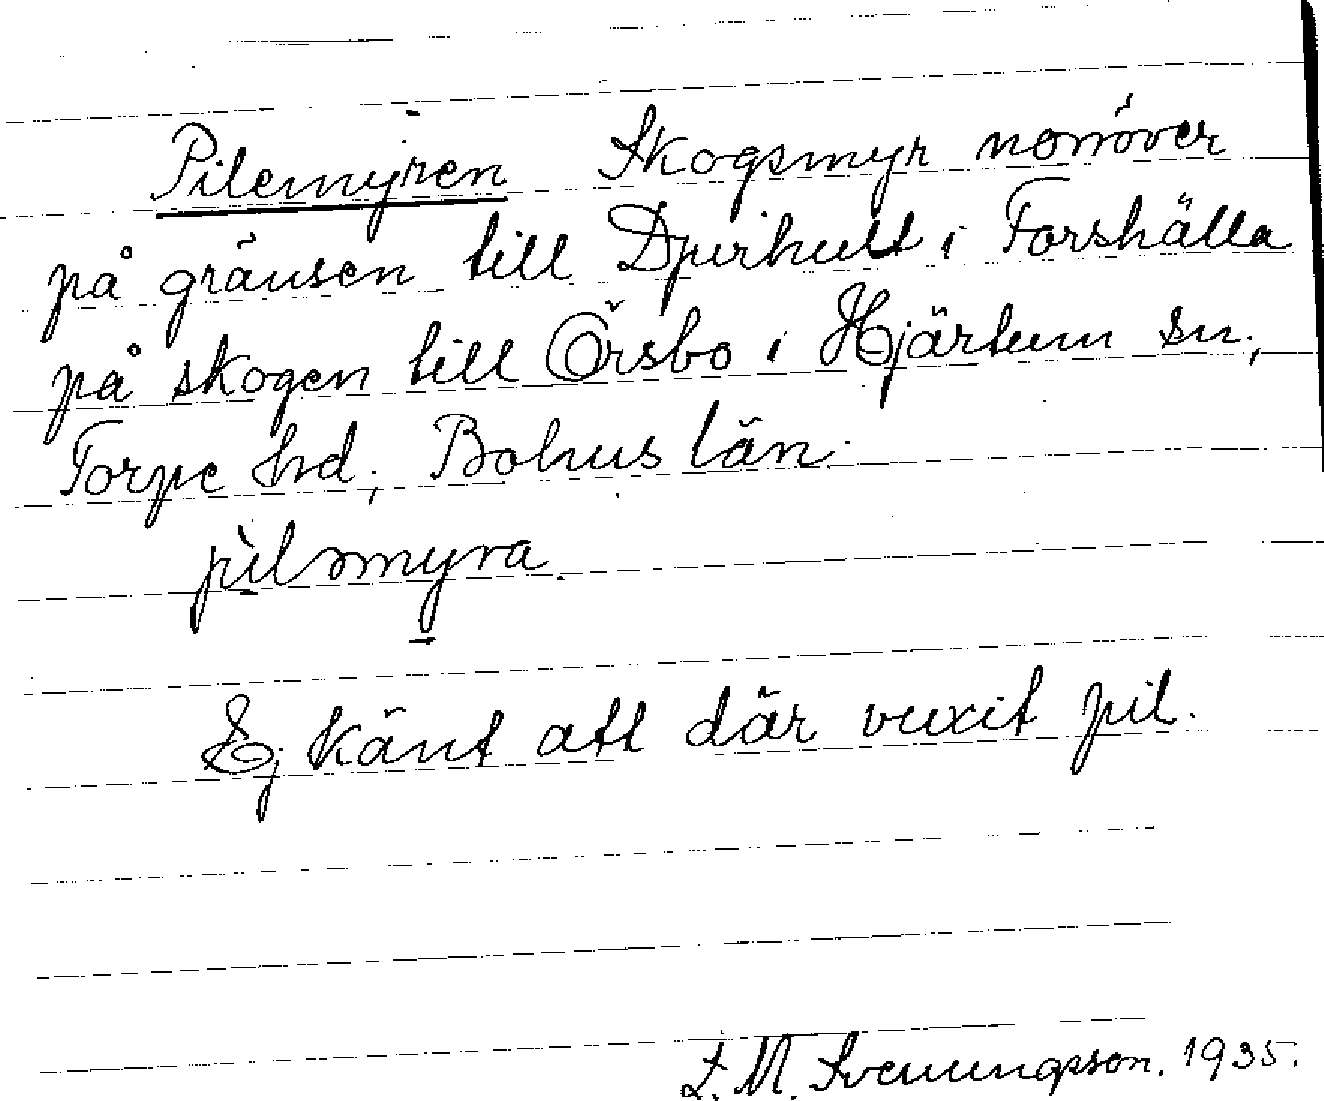 Pilemyren Skogsmyr norröver
på gränsen till Djurhult i Forshälla
på skogen till Örsbo i Hjärtum sn,
Torpe hd, Bohus län.
pìlmyra.
Ej känt att där vuxit pil.
F. M. Svenungsson. 1935.